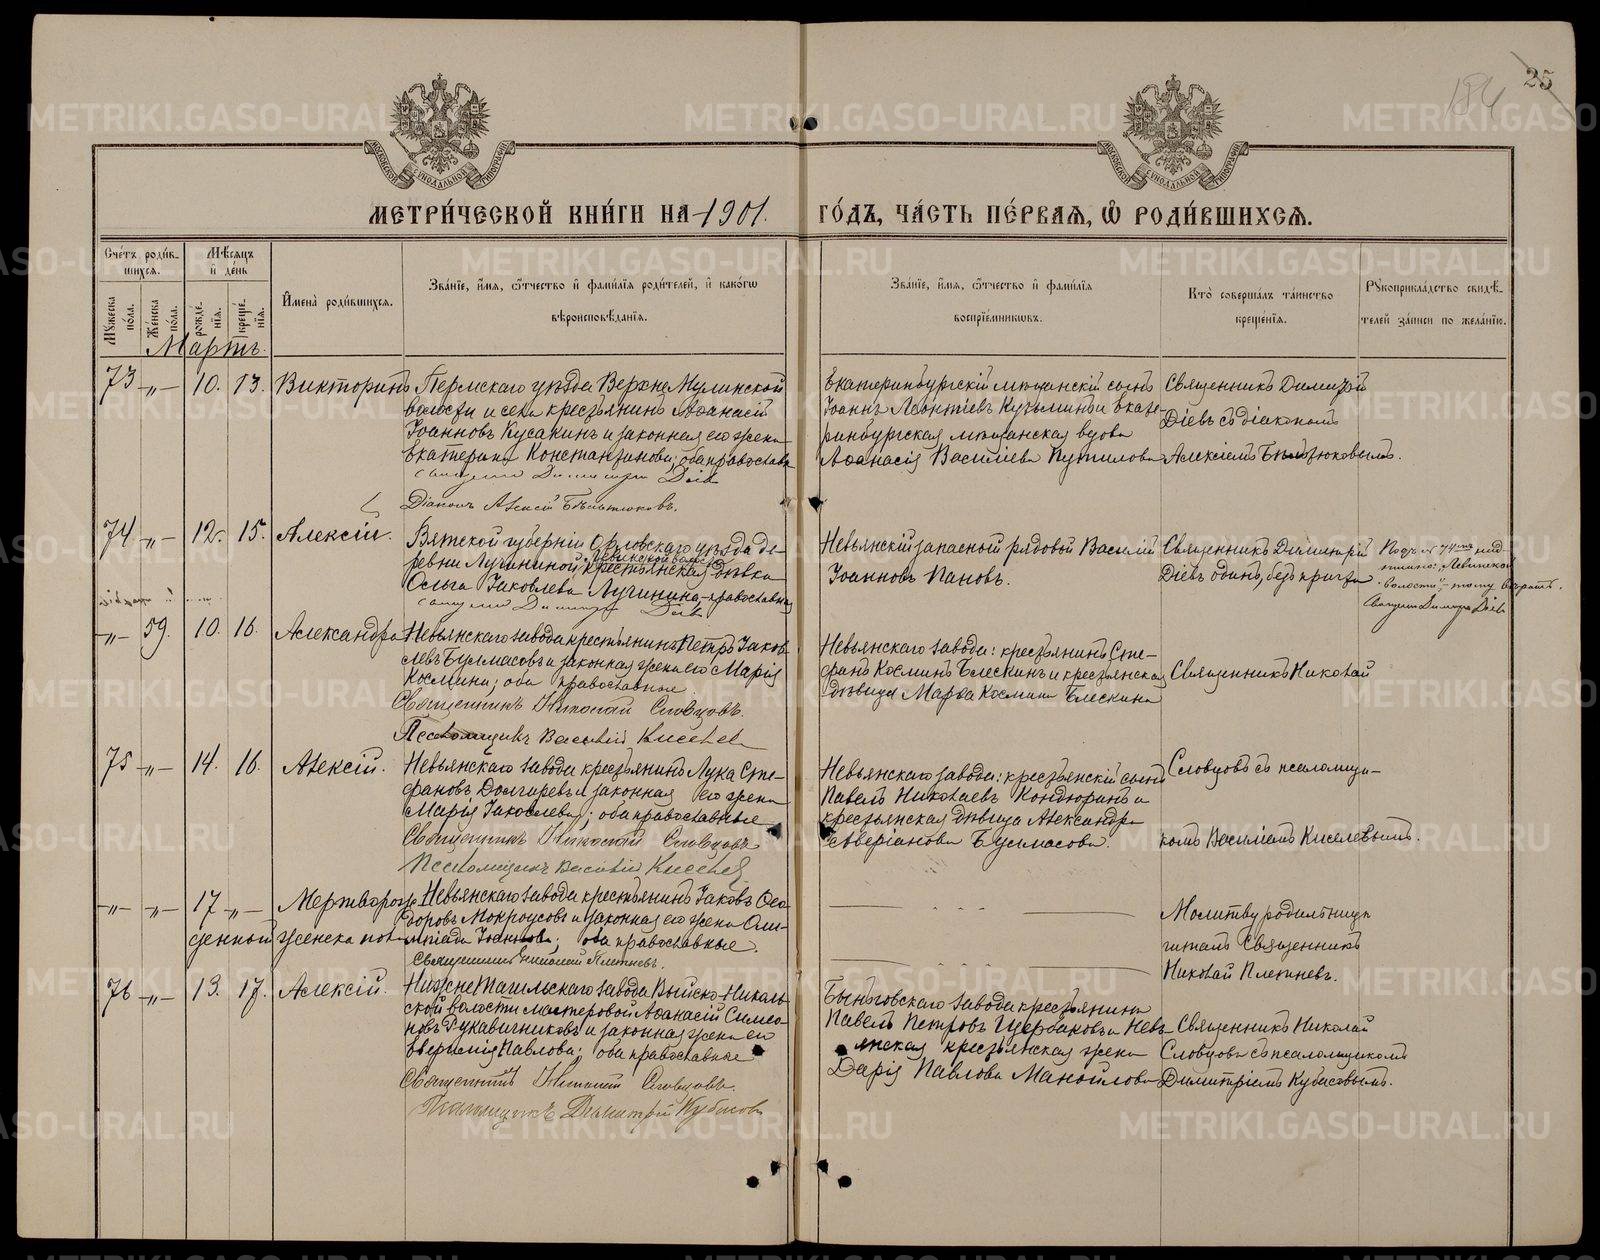 25
184
МОСКОВСКОЙ СѴНОДАЛЬНОЙ ТИПОГРАФІИ
МОСКОВСКОЙ СѴНОДАЛЬНОЙ ТИПОГРАФІИ
МЕТРИ́ЧЕСКОЙ КНИ́ГИ НА 1901.
ГО́ДЪ, ЧА́СТЬ ПЕ́РВАЯ, Ѡ҆ РОДИ́ВШИХСЯ.
Сче́тъ роди́в-
шихся.
Мѣ́сяцъ
и҆ де́нь
Мꙋ́жеска по́ла.
Же́нска по́ла.
рожде́нїя.
креще́нїя.
И҆мена̀ роди́вшихся.
Зва́нїе, и҆́мя, ѻ҆́тчество и҆ фами́лїя роди́телей, и҆ како́гѡ
вѣроисповѣ́данїя.
Зва́нїе, и҆́мя, ѻ҆́тчество и҆ фами́лїя
воспрїе́мниковъ.
Кто̀ соверша́лъ та́инство
креще́нїя.
Рꙋкоприкла́дство свидѣ́-
телей за́писи по жела́нїю.
Мартъ.
73 -„- 10. 13. Викторинъ
Пермскаго уѣзда Верхне Мулинской
волости и села крестьянинъ Аѳанасій
Іоанновъ Кусакинъ и законная его жена
Екатерина Константинова; оба православн
Діаконъ Алексій Бѣлтюковъ.
Екатеринбургскій мѣщанскій сынъ
Іоаннъ Леонтіевъ Кузьминъ и Екате-
ринбургская мѣщанская вдова
Аѳанасія Василіева Путилова
Священникъ Димитрій
Діевъ съ діакономъ
Алексіемъ Бѣлтюковымъ.
74 -„- 12. 15. Алексій.
Вятской губерніи Орловскаго уѣзда де-
Левинской волости
ревни Лучининой крестьянская дѣвка
Ольга Іаковлева Лучинина, православная
Невьянскій запасной рядовой Василій
Іоанновъ Пановъ.
Священникъ Димитрій
Діевъ одинъ, безъ причта
Подъ № 74мъ над-
писано: „Левинской
волости“, тому вѣрить.
Священникъ Димитрій Діевъ
-„- 59. 10. 16. Александра
Невьянскаго завода крестьянинъ Петръ Іаков-
левъ Бушмасовъ и законная жена его Марія
Космина; оба православные
Священникъ Николай Словцовъ.
Псаломщикъ Василій Киселев
Невьянскаго завода: крестьянинъ Сте-
фанъ Косминъ Блескинъ и крестьянская
дѣвица Марѳа Космина Блескина
Священникъ Николай
75 -„- 14. 16. Алексій.
Невьянскаго завода крестьянинъ Лука Сте-
фановъ Долгиревъ и законная его жена
Марія Іаковлева; оба православные
Священникъ Николай Словцовъ
Псаломщикъ Василій Киселев
Невьянскаго завода: крестьянскій сынъ
Павелъ Николаевъ Кондюринъ и
крестьянская дѣвица Александра
Аверіанова Бушмасова.
Словцовъ съ псаломщи-
комъ Василіемъ Киселевымъ.
-„- -„- 17 -„- Мертворож
денной женска пола
Невьянскаго завода крестьянинъ Іаковъ Ѳео
доровъ Мокроусовъ и законная его жена Оли-
мпіада Іоаннова; оба православные.
Священникъ Николай Плетневъ.
Молитву родильницѣ
читалъ Священникъ
Николай Плетневъ.
76 -„- 13. 17. Алексій.
Нижне Тагильскаго завода Выйско-Николь-
ской волости мастеровой Аѳанасій Симео-
новъ Рукавичниковъ и законная жена его
Павлова; оба православные
Священникъ Николай Словцовъ.
Псаломщикъ Димитрій Кубасовъ
Быньговскаго завода крестьянинъ
Павелъ Петровъ Щербаковъ и Невь-
янская крестьянская жена
Дарія Павлова Манойлова
Священникъ Николай
Словцовъ съ псаломщикомъ
Димитріемъ Кубасовымъ.
METRIKI.GASO-URAL.RU